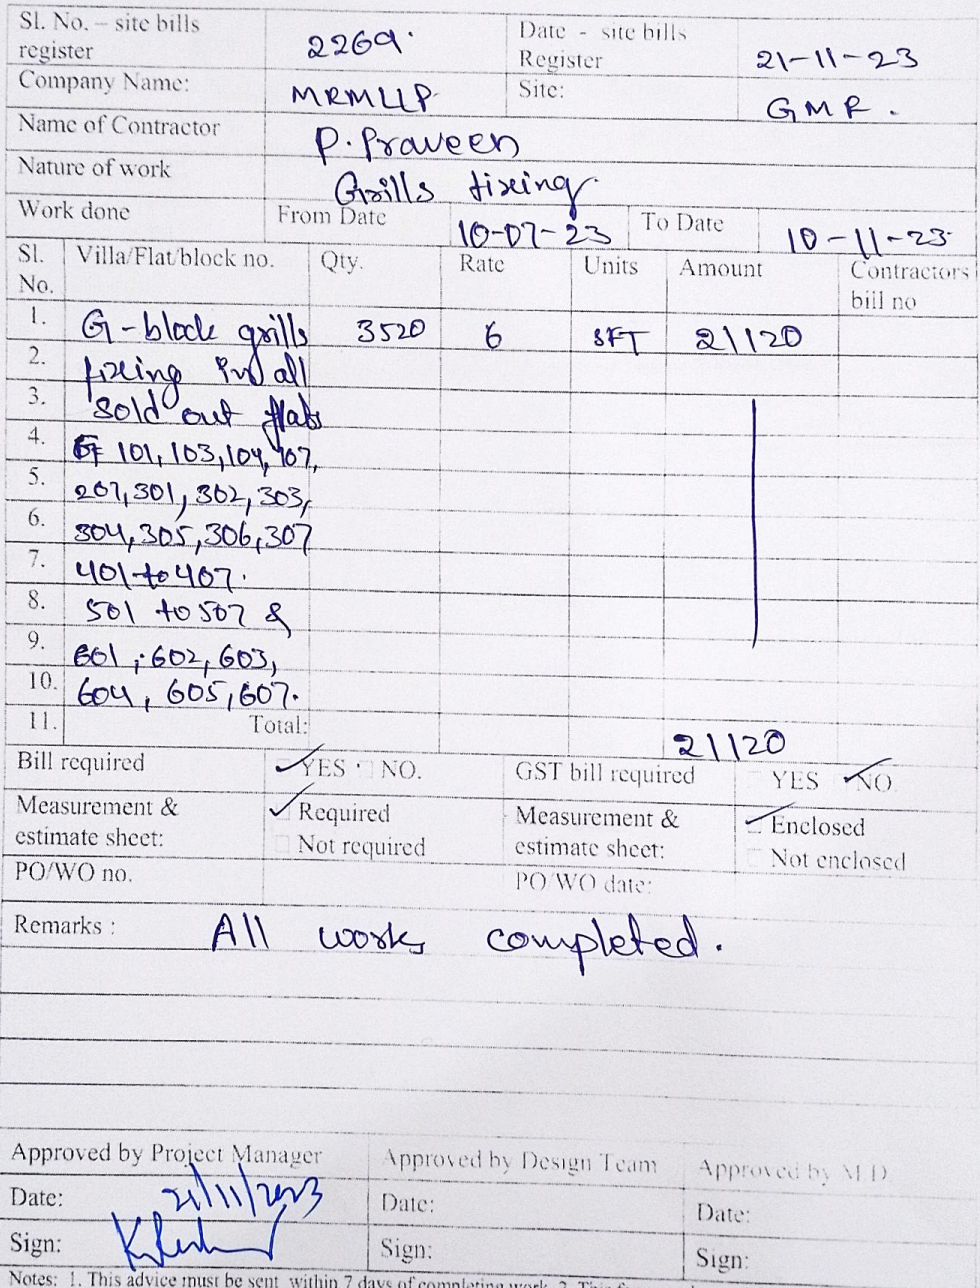 Sl. No. – site bills register 2269. Date - site bills Register 21-11-23
Company Name: MRMLLP Site: GMR.
Name of Contractor P. Praveen
Nature of work Grills fixing
Work done From Date 10-07-23 To Date 10-11-23
Sl. No. Villa/Flat/block no. Qty. Rate Units Amount Contractors bill no
1. G-block grills 3520 6 SFT 21120
2. fixing in all
3. sold out flats
4. 101, 103, 104, 107,
5. 207, 301, 302, 303,
6. 304, 305, 306, 307
7. 401 to 407.
8. 501 to 507 &
9. 601, 602, 603,
10. 604, 605, 607.
11. Total: 21120
Bill required YES NO. GST bill required YES NO.
Measurement & estimate sheet: Required Not required Measurement & estimate sheet: Enclosed Not enclosed
PO/WO no. PO/WO date:
Remarks : All works completed.
Approved by Project Manager Approved by Design Team Approved by M.D.
Date: 21/11/2023 Date: Date:
Sign: Sign: Sign:
Notes: 1. This advice must be sent within 7 days of completing work. 2. This